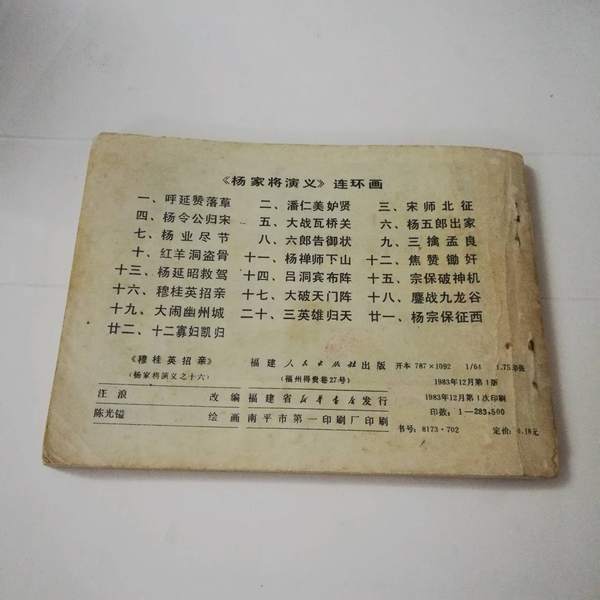 《杨家将演义》连环画
一、呼延赞落草 二、潘仁美妒贤 三、宋师北征
四、杨令公归宋 五、大战瓦桥关 六、杨五郎出家
七、杨业尽节 八、六郎告御状 九、三擒孟良
十、红羊洞盗骨 十一、杨禅师下山 十二、焦赞锄奸
十三、杨延昭救驾 十四、吕洞宾布阵 十五、宗保破神机
十六、穆桂英招亲 十七、大破天门阵 十八、鏖战九龙谷
十九、大闹幽州城 二十、三英雄归天 廿一、杨宗保征西
廿二、十二寡妇凯归
《穆桂英招亲》 福建人民出版社出版 开本 787×1092 1/64 1.75印张
(杨家将演义之十六) (福州得贵巷27号) 1983年12月第1版
汪浪 改编 福建省新华书店发行 1983年12月第1次印刷
陈光镒 绘画 南平市第一印刷厂印刷 印数：1—283,500
书号：8173·702 定价：0.18元